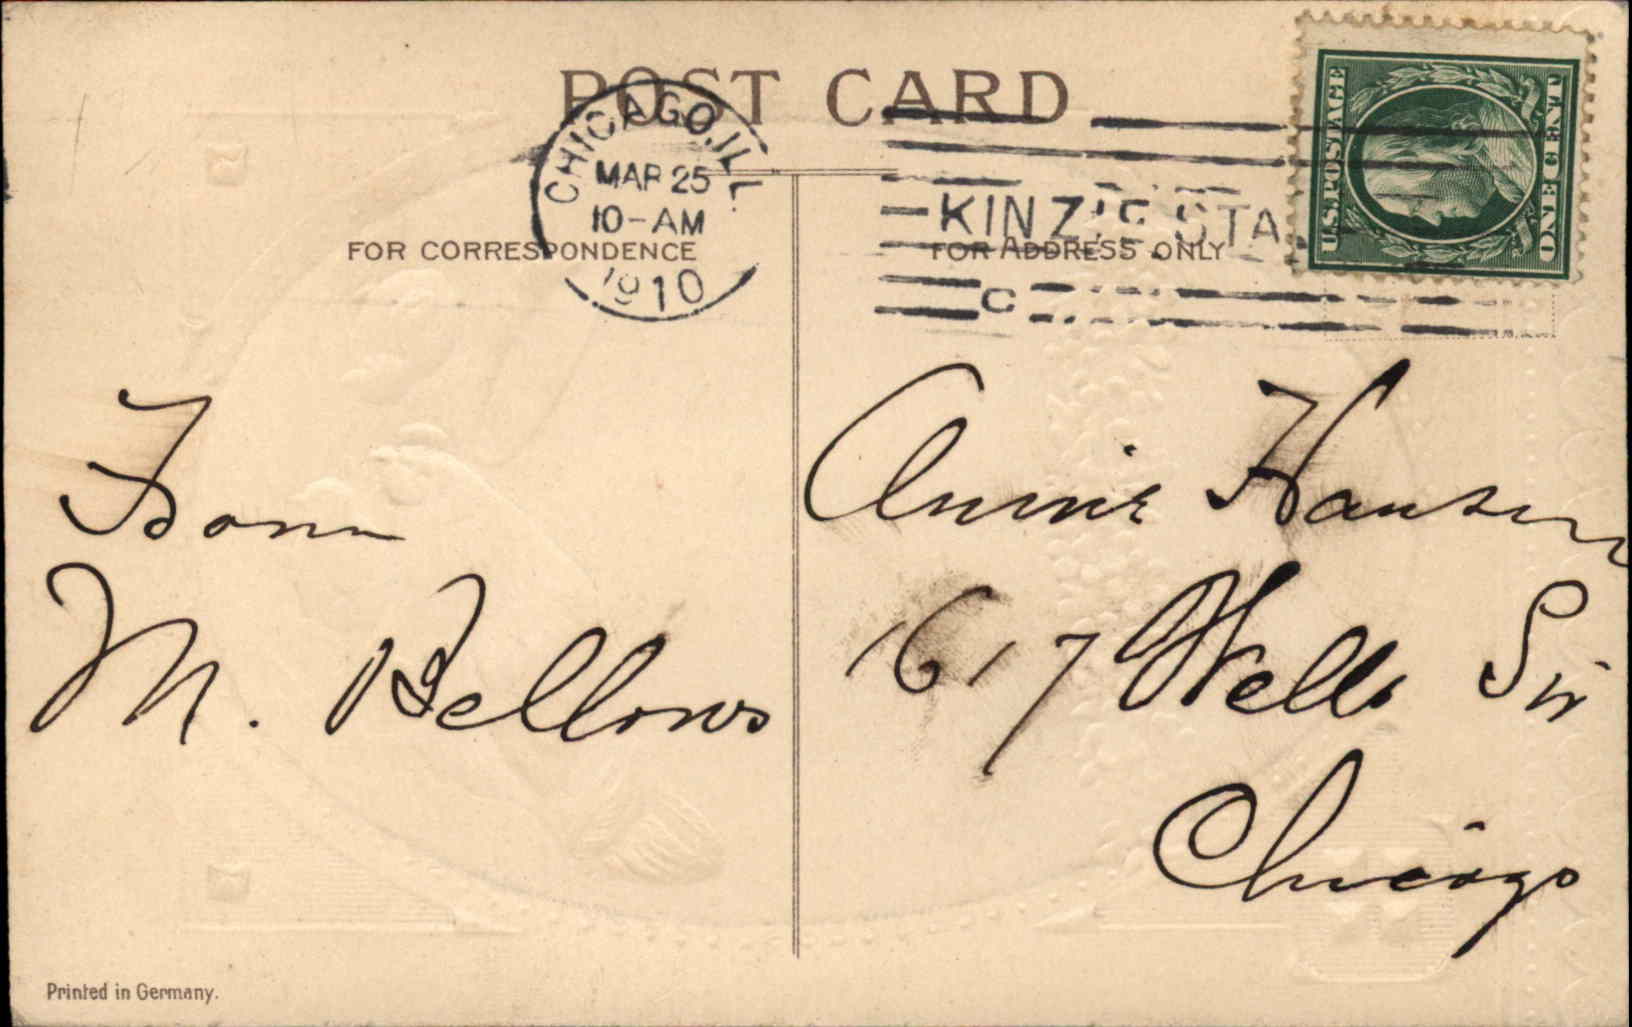 POST CARD
CHICAGO, ILL.
MAR 25
10-AM
1910
KINZIE STA.
C
U.S. POSTAGE
ONE CENT
FOR CORRESPONDENCE
FOR ADDRESS ONLY
From
M. Bellows
Annie Hansen
1617 Wells Str
Chicago
Printed in Germany.